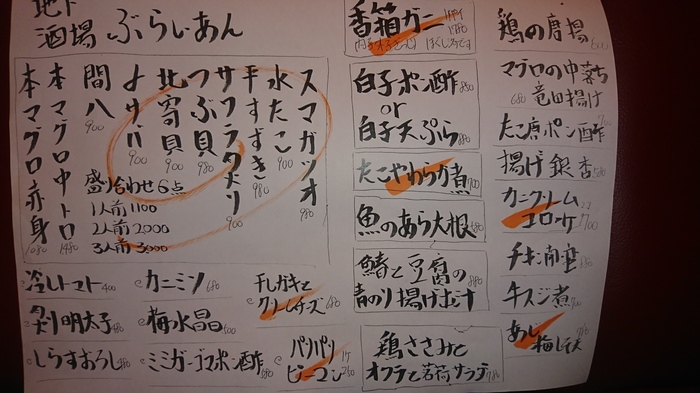 地下
酒場 ぶらいあん
スマガツオ 980
水たこ 900
平すずき 980
サワラタタキ 900
つぶ貝 980
北寄貝 900
よサバ 900
間八 900
本マグロ中トロ 1480
本マグロ赤身 1080
盛り合わせ6点
1人前 1100
2人前 2,000
3人前 3,000
冷しトマト 400
明太子
しらすおろし
カニミソ 680
梅水晶 500
ミミガーゴマポン酢
干しガキと
クリームチーズ 680
パリパリ
ピーマン
香箱ガニ
白子ポン酢 880
or
白子天ぷら 880
たこやわらか煮 700
魚のあら大根
鯖と豆腐の
青のり揚げ出汁
鶏ささみと
オクラと茗荷サラダ
鶏の唐揚
マグロの中落ち
竜田揚げ 680
たこ唐ポン酢
揚げ銀杏
カニクリーム
コロッケ 700
チキン南蛮
牛スジ煮 700
あじ
梅しそ天